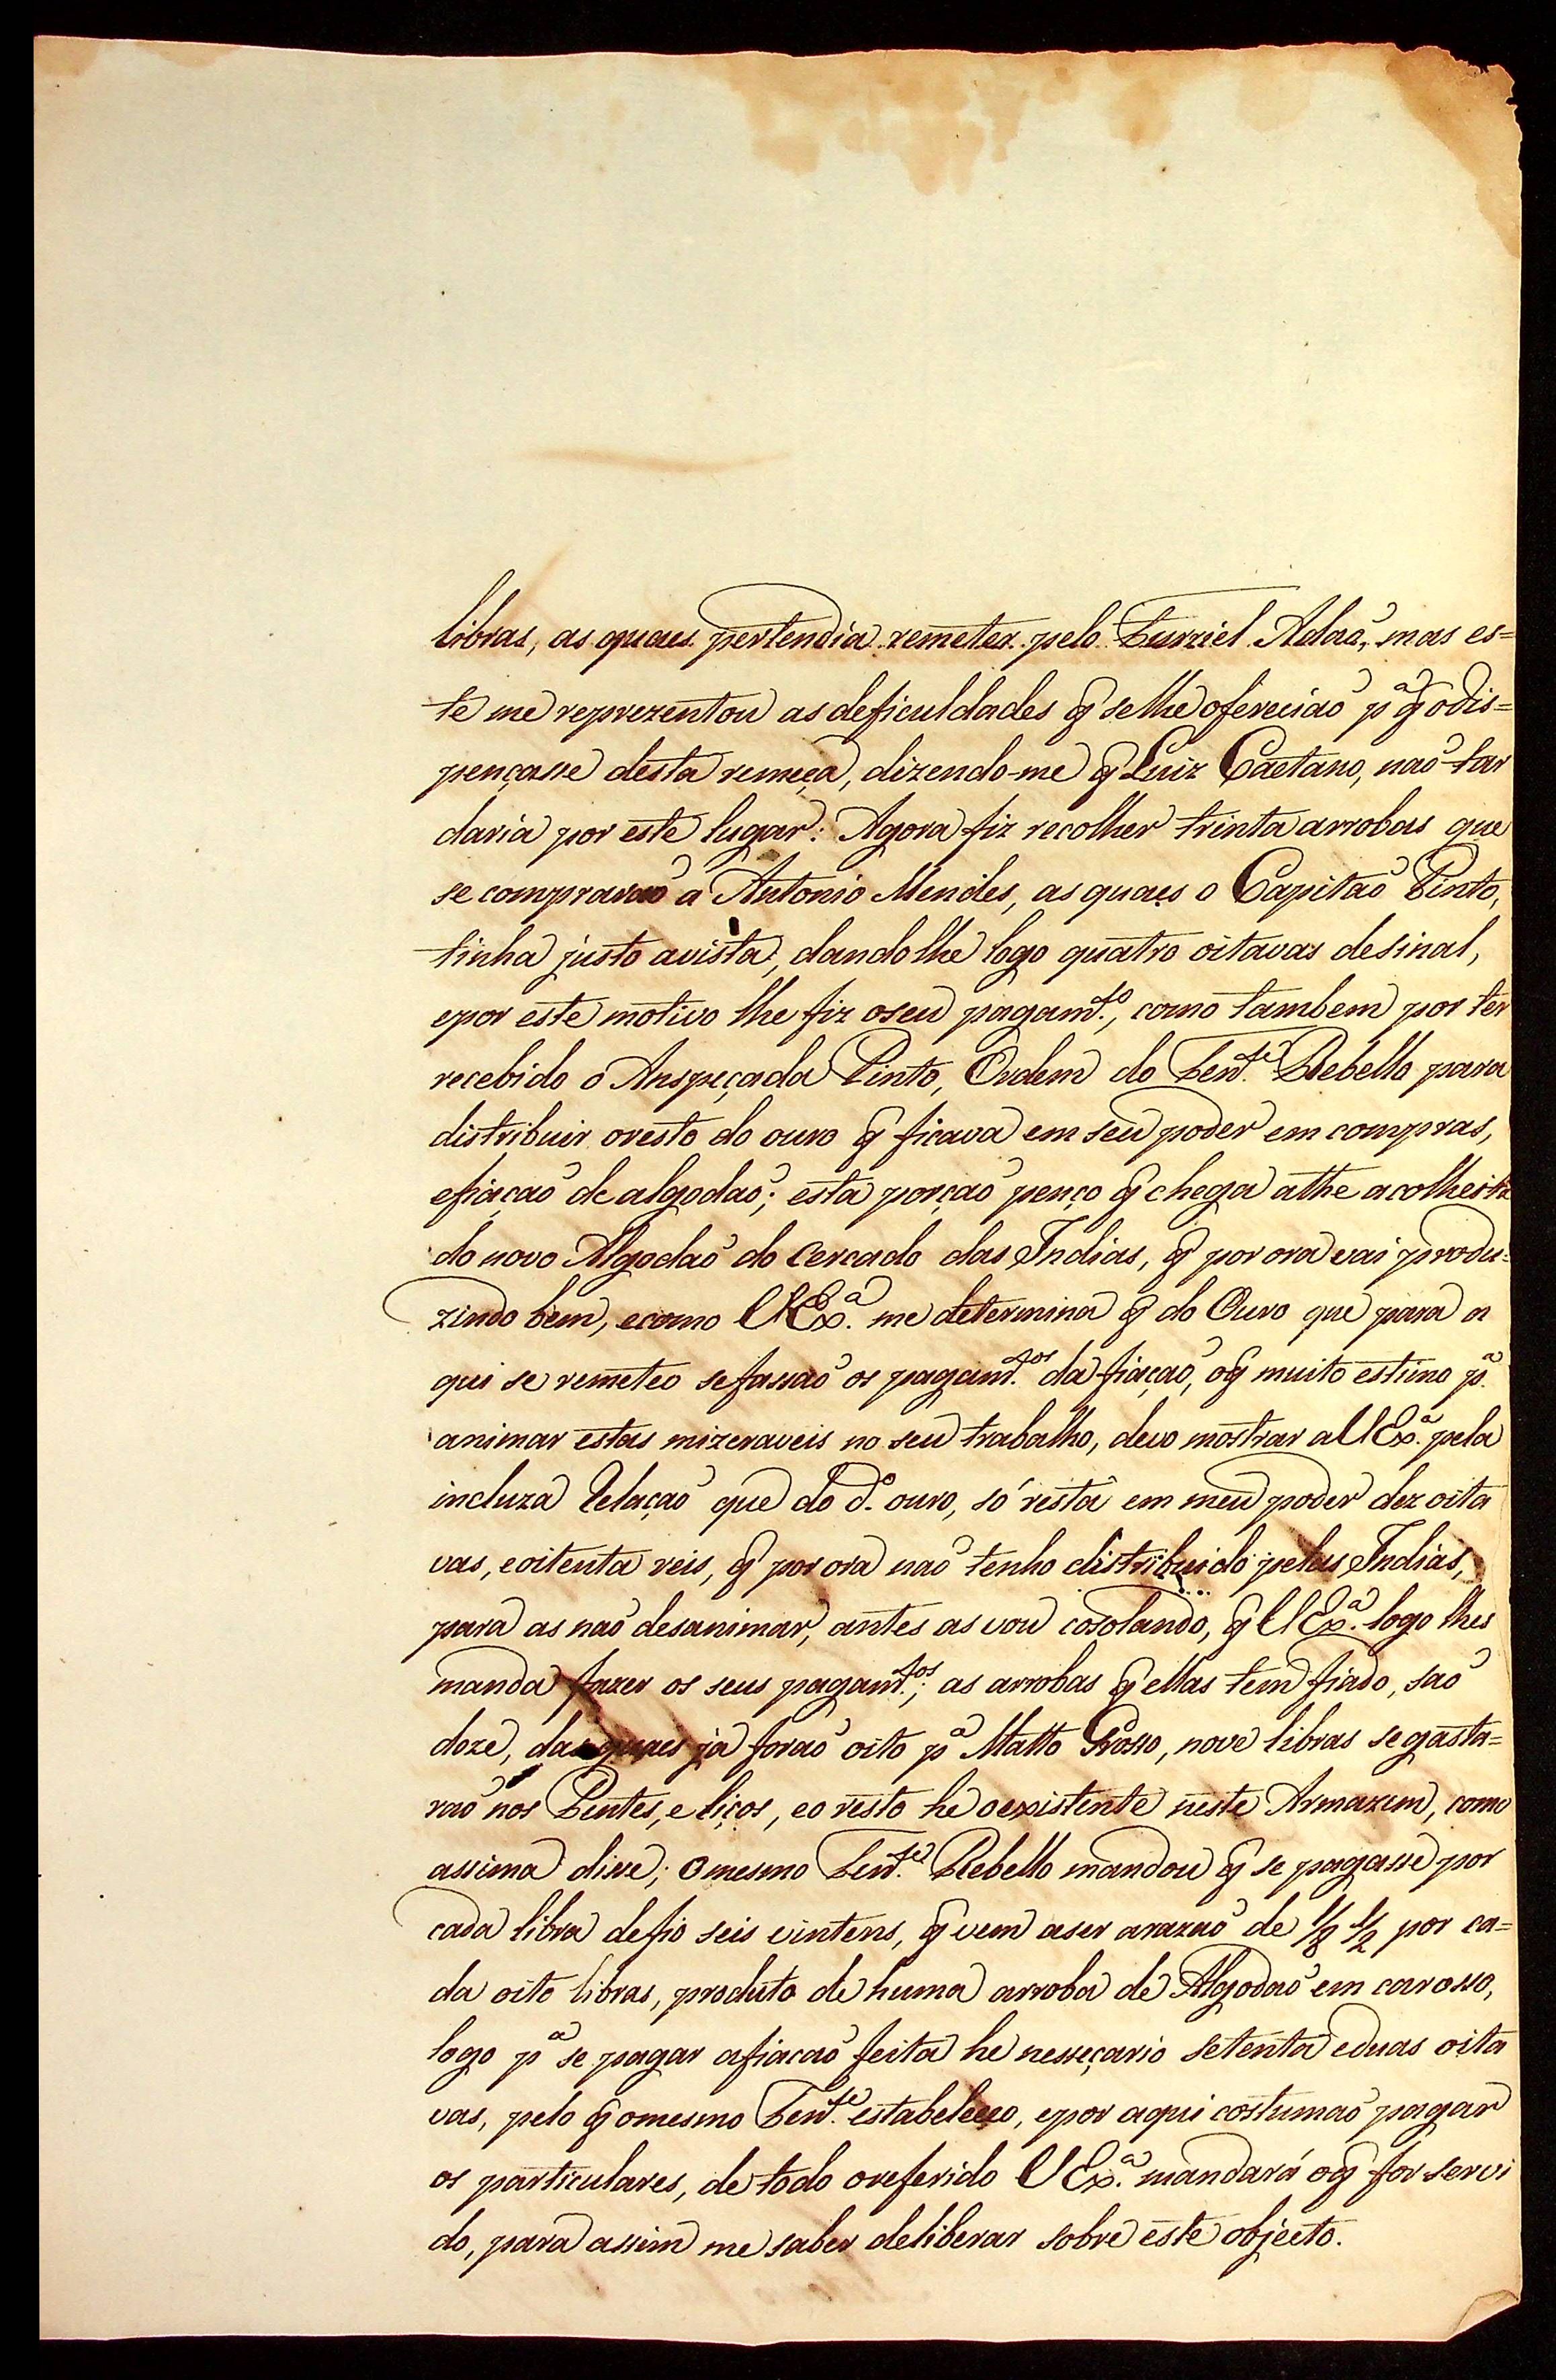 libras, as quaes pertendia remeter pelo Furriel Adaõ, mas es=
te me reprezentou as deficuldades q̃ selhe ofereciaõ pª q̃ odis=
pençasse desta remeça, dizendo-me q̃ Luiz Caetano, naõ tar
daria por este lugar: Agora fiz recolher trinta arrobas que
se compraraõ a Antonio Mendes, as quaes o Capitaõ Pinto,
tinha justo avista, dandolhe logo quatro oitavas desinal,
epor este motivo lhe fiz oseu pagam.to, como tambem por ter
recebido o Anspeçada Pinto, Ordem do Ten.te Rebello para
distribuir oresto do ouro q̃ ficava em seu poder em compras,
efiaçaõ de algodaõ; esta porçaõ penço q̃ chega athe acolheita
do novo Algodaõ do Cercado das Indias, q̃ por ora vai produ=
zindo bem, ecomo VExª. me determina q̃ do Ouro que para a
qui se remeteo sefassaõ os pagam.tos da fiaçaõ, oq̃ muito estimo pª.
animar estas mizeraveis no seu trabalho, devo mostrar aVExª. pela
incluza Relaçaõ que do d.o ouro, só resta em meu poder dez oita
vas, eoitenta reis, q̃ por ora naõ tenho distribuido pelas Indias,
para as naõ desanimar, antes as vou cosolando, q̃ VExª. logo lhes
manda fazer os seus pagam.tos; as arrobas q̃ ellas tem fiado, saõ
doze, das quaes ja foraõ oito pª Matto Grosso, nove libras se gasta=
raõ nos Pentes, e liços, eo resto he oexistente neste Armazem, como
assima disse; Omesmo Ten.te Rebello mandou q̃ se pagasse por
cada libra defio seis vintens, q̃ vem aser arazaõ de 1/8 1/2 por ca=
da oito libras, produto de huma arroba de Algodaõ em carosso,
logo pª se pagar afiacaõ feita he nesseçario setenta eduas oita
vas, pelo q̃ omesmo Ten.te estabeleceo, epor aqui costumaõ pagar
os particulares, de todo oreferido VExª. mandará oq̃ for servi
do, para assim me saber deliberar sobre este objecto.